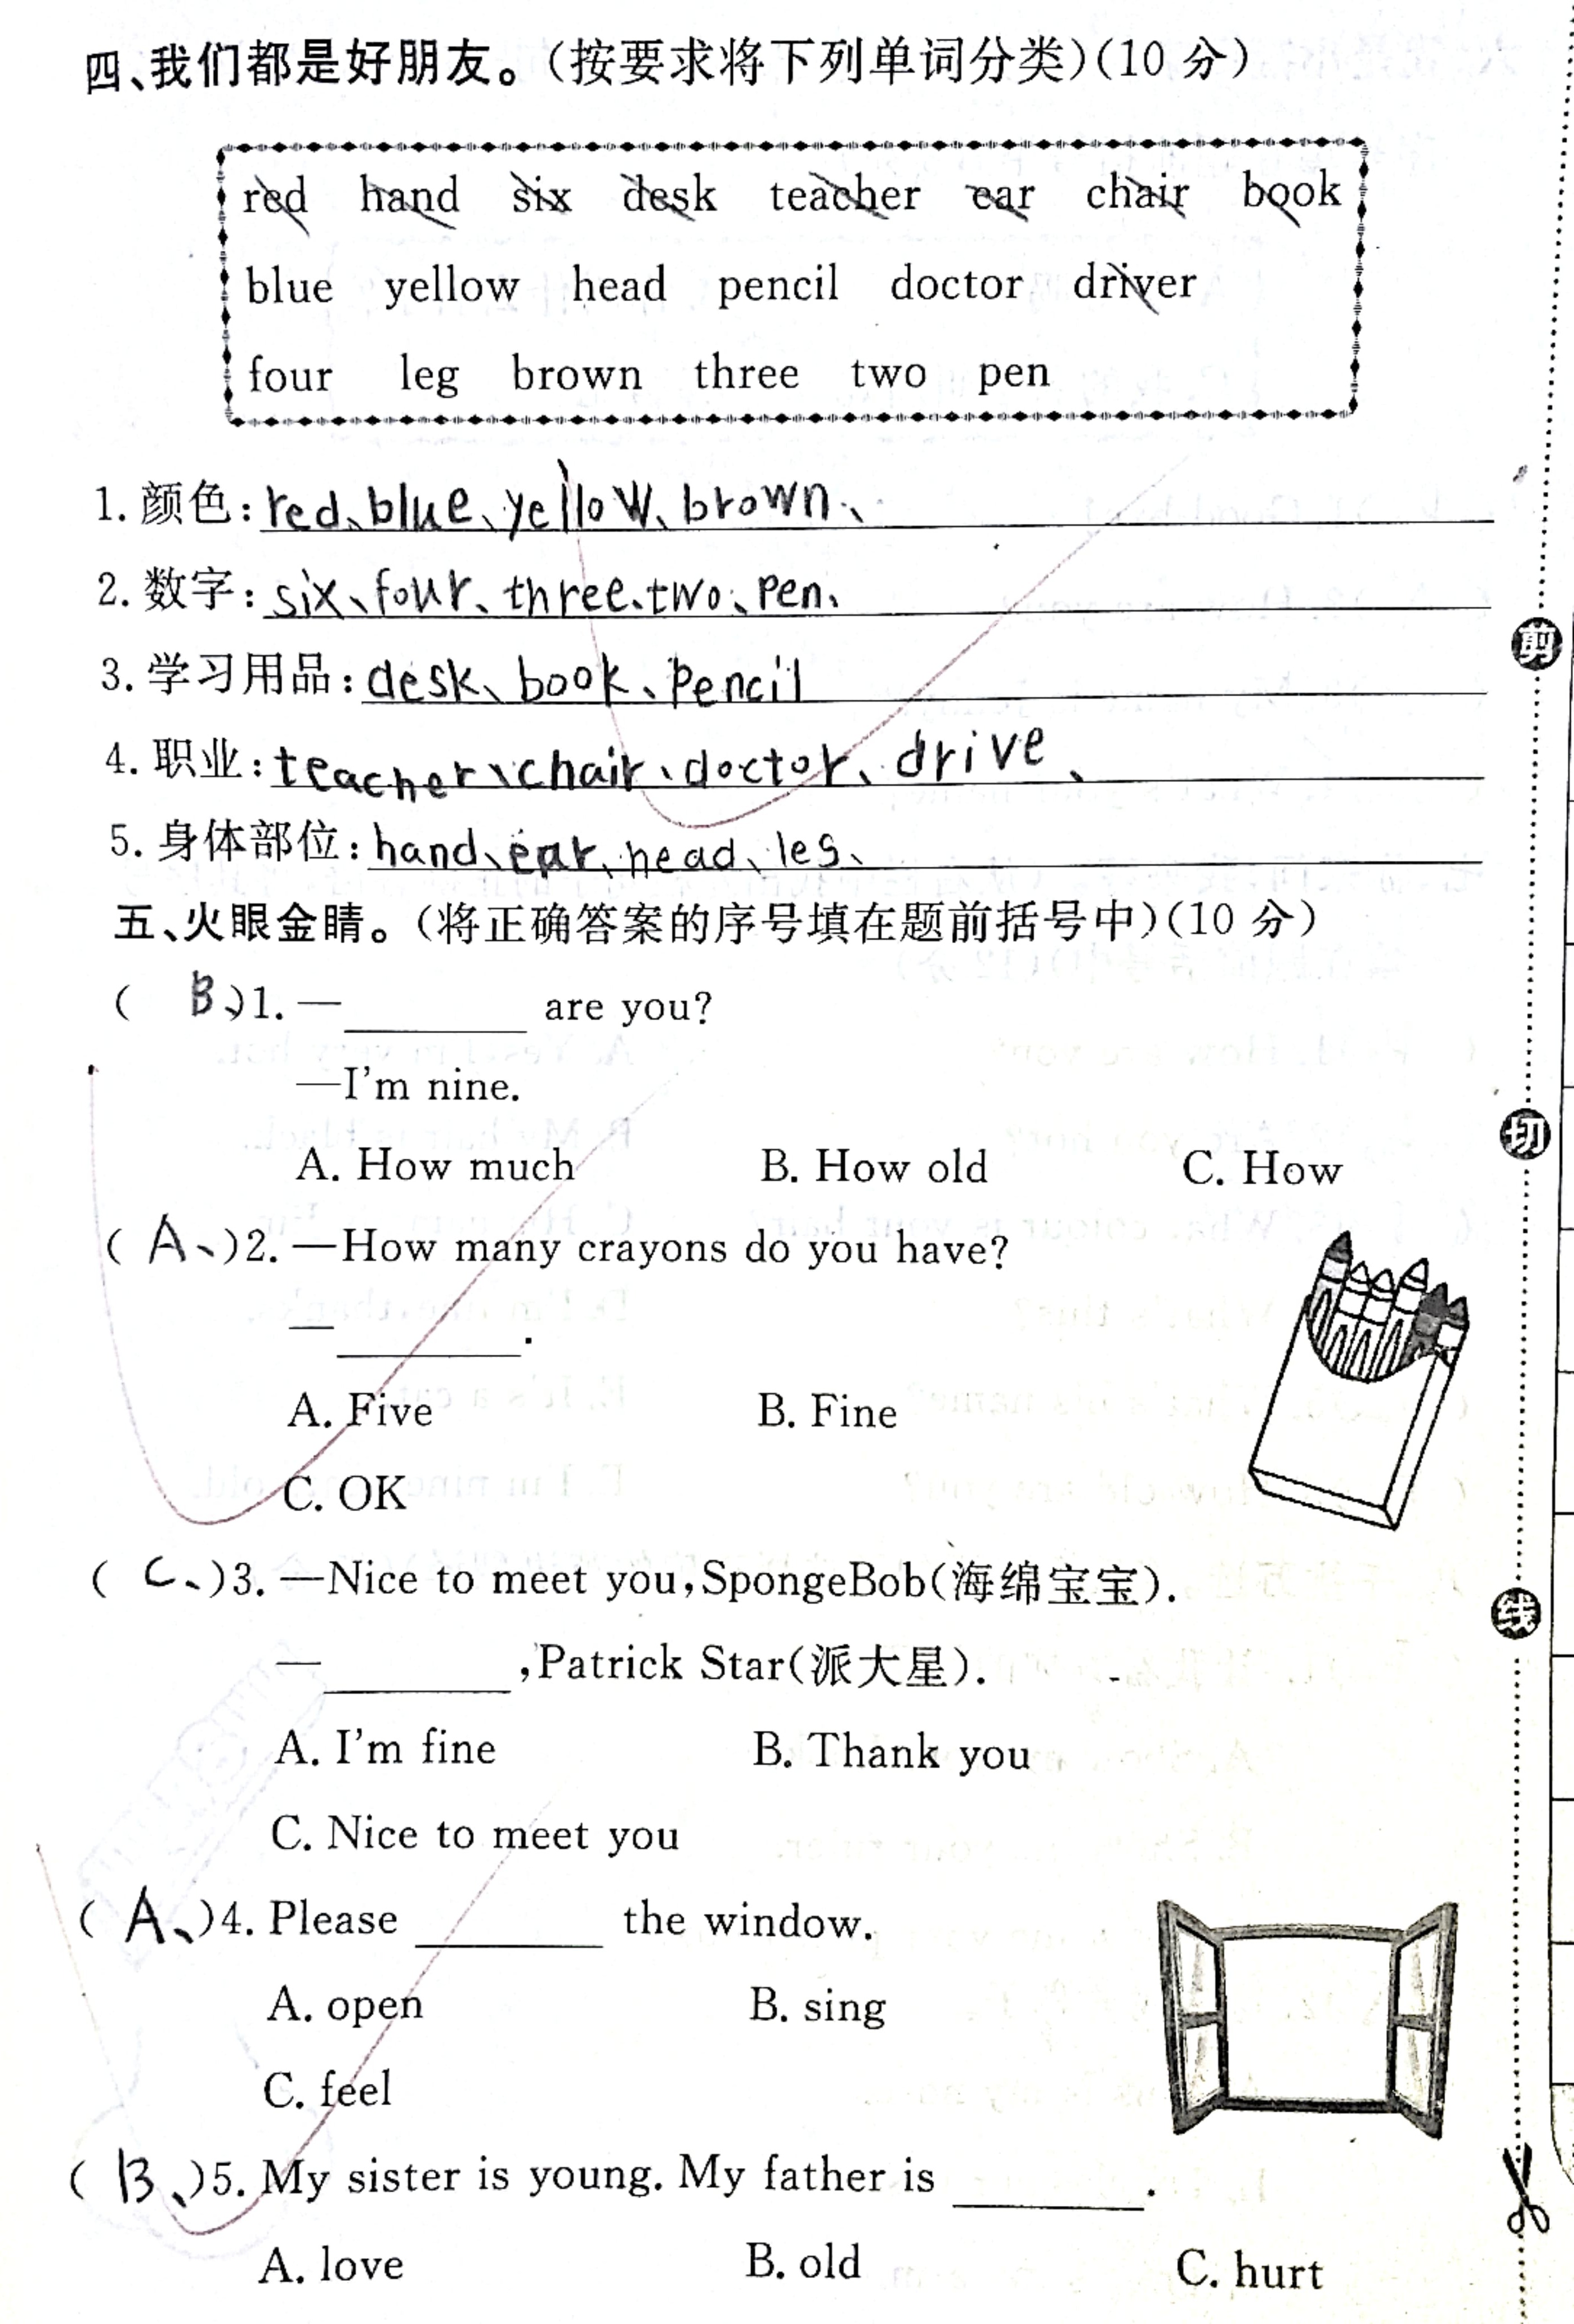 四、我们都是好朋友。(按要求将下列单词分类)(10 分)
red hand six desk teacher ear chair book
blue yellow head pencil doctor driver
four leg brown three two pen
1. 颜色:red、blue、yellow、brown、
2. 数字:six、four、three、two、pen、
3. 学习用品:desk、book、pencil
4. 职业:teacher、chair、doctor、drive、
5. 身体部位:hand、ear、head、leg、
五、火眼金睛。(将正确答案的序号填在题前括号中)(10 分)
( B、)1. —______ are you?
—I'm nine.
A. How much B. How old C. How
( A、)2. —How many crayons do you have?
—______.
A. Five B. Fine
C. OK
( C、)3. —Nice to meet you,SpongeBob(海绵宝宝).
—______,Patrick Star(派大星).
A. I'm fine B. Thank you
C. Nice to meet you
( A、)4. Please ______ the window.
A. open B. sing
C. feel
( B、)5. My sister is young. My father is ______.
A. love B. old C. hurt
剪
切
线